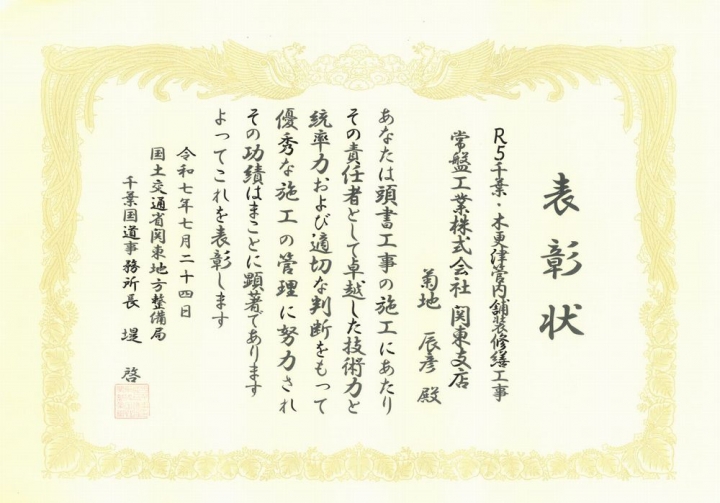 表彰状
R5千葉・木更津管内舗装修繕工事
常盤工業株式会社 関東支店
菊地 辰彦 殿
あなたは頭書工事の施工にあたり
その責任者として卓越した技術力と
統率力および適切な判断をもって
優秀な施工の管理に努力され
その功績はまことに顕著であります
よってこれを表彰します
令和七年七月二十四日
国土交通省関東地方整備局
千葉国道事務所長 堤 啓